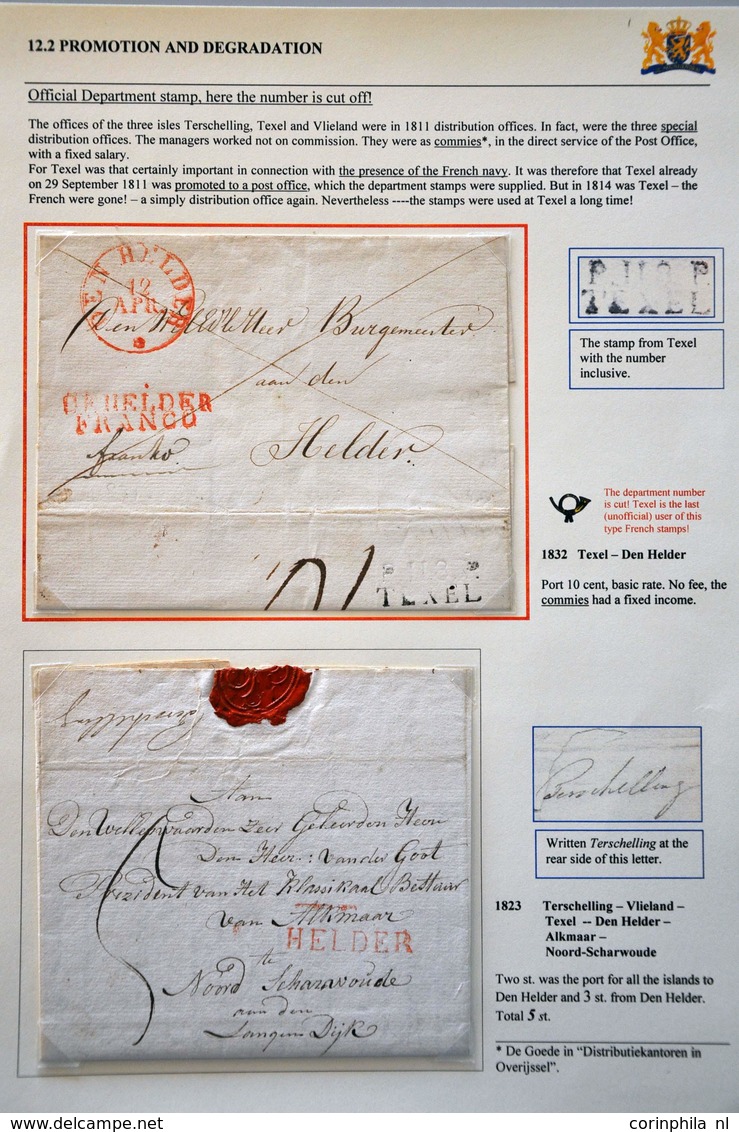 12.2 PROMOTION AND DEGRADATION
Official Department stamp, here the number is cut off!
The offices of the three isles Terschelling, Texel and Vlieland were in 1811 distribution offices. In fact, were the three special
distribution offices. The managers worked not on commission. They were as commies*, in the direct service of the Post Office,
with a fixed salary.
For Texel was that certainly important in connection with the presence of the French navy. It was therefore that Texel already
on 29 September 1811 was promoted to a post office, which the department stamps were supplied. But in 1814 was Texel – the
French were gone! – a simply distribution office again. Nevertheless ----the stamps were used at Texel a long time!
DEN HELDER
12
APR
Burgemeester
aan den
Helder
HELDER
FRANCO
franko
TEXEL
P 118 P
TEXEL
The stamp from Texel
with the number
inclusive.
The department number
is cut! Texel is the last
(unofficial) user of this
type French stamps!
1832 Texel – Den Helder
Port 10 cent, basic rate. No fee, the
commies had a fixed income.
Terschelling
Aan
Den Welleerwaarden Zeer Geleerden Heere
Den Heer: van der Goot
President van Het Klassikaal Bestuur
van Alkmaar
HELDER
te
Noord Scharwoude
aan den
Langen Dijk
Terschelling
Written Terschelling at the
rear side of this letter.
1823 Terschelling – Vlieland –
Texel -- Den Helder –
Alkmaar –
Noord-Scharwoude
Two st. was the port for all the islands to
Den Helder and 3 st. from Den Helder.
Total 5 st.
* De Goede in “Distributiekantoren in
Overijssel”.
corinphila nl